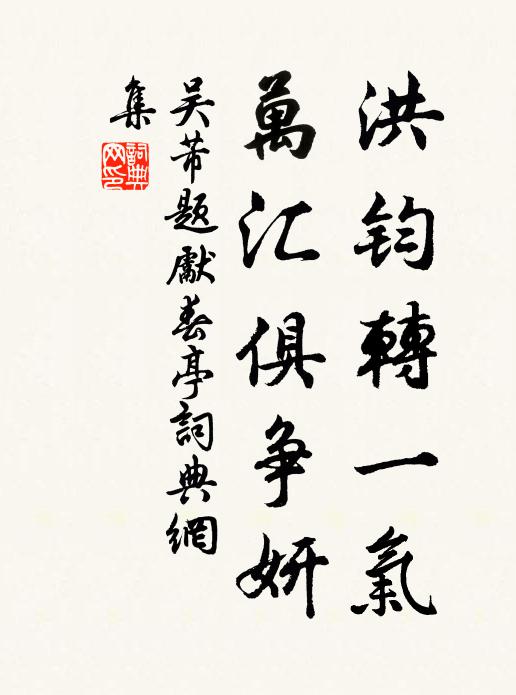 洪钧轉一氣
萬汇俱争妍
吴芾題獻春亭詞典網
集
詞典
网印